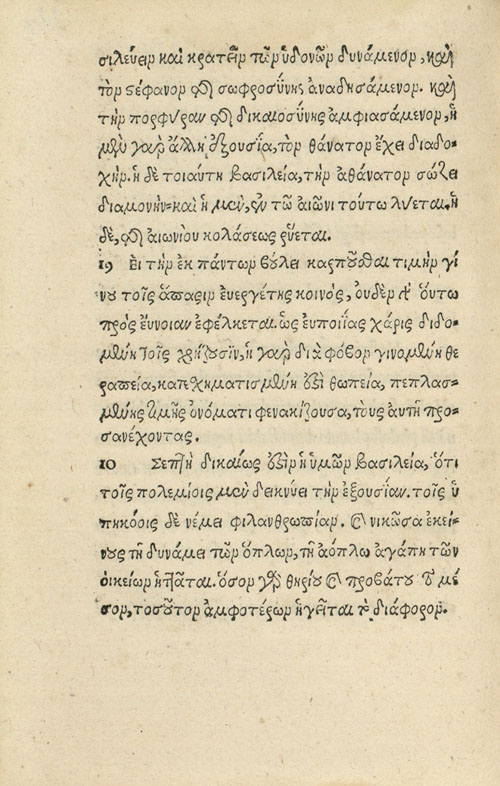 σιλεύειν καὶ κρατεῖν τῶν ὑδονῶν δυνάμενον, καὶ
τὸν στέφανον τῆς σωφροσύνης ἀναδησάμενον. καὶ
τὴν πορφύραν τῆς δικαιοσύνης ἀμφιασάμενον, ἡ
μὲν γὰρ ἄλλη ἐξουσία, τὸν θάνατον ἔχει διαδο-
χήν. ἡ δὲ τοιαύτη βασιλεία, τὴν ἀθάνατον σώζει
διαμονὴν· καὶ ἡ μὲν, ἐν τῶ αἰῶνι τούτω λύεται. ἡ
δὲ, τῆς αἰωνίου κολάσεως ῥύεται.
19 Εἰ τὴν ἐκ πάντων βούλει καρποῦσθαι τιμὴν γί
νου τοῖς ἅπασιν ἐυεργέτης κοινὸς, ὀυδὲν γὰρ ὅυτω
πρὸς ἔυνοιαν ἐφέλκεται. ὡς ἐυποιΐας χάρις διδο-
μένη τοῖς χρήζουσϊν, ἡ γὰρ διὰ φόβον γινομένη θε
ραπεία, κατεχηματισμένη ἐστὶ θωπεία, πεπλασ-
μένης τιμῆς ὀνόματι φενακίζουσα, τοὺς αὐτῆ προ-
σανέχοντας.
20 Σεπτὴ δικαίως ἐστὶν ἡ ὑμῶν βασιλεία, ὅτι
τοῖς πολεμίοις μὲν δεικνύει τὴν ἐξουσίαν. τοῖς ὑ
πηκόοις δὲ νέμει φιλανθρωπίαν. καὶ νικῶσα ἐκεί-
νους τῆ δυνάμει τῶν ὅπλων, τῆ ἀόπλω ἀγάπη τῶν
ὀικείων ἡττᾶται. ὅσον γὰρ θηρίου καὶ προβάτου τὸ μέ
σον, τοσοῦτον ἀμφοτέρων ἡγεῖται τὸ διάφορον.